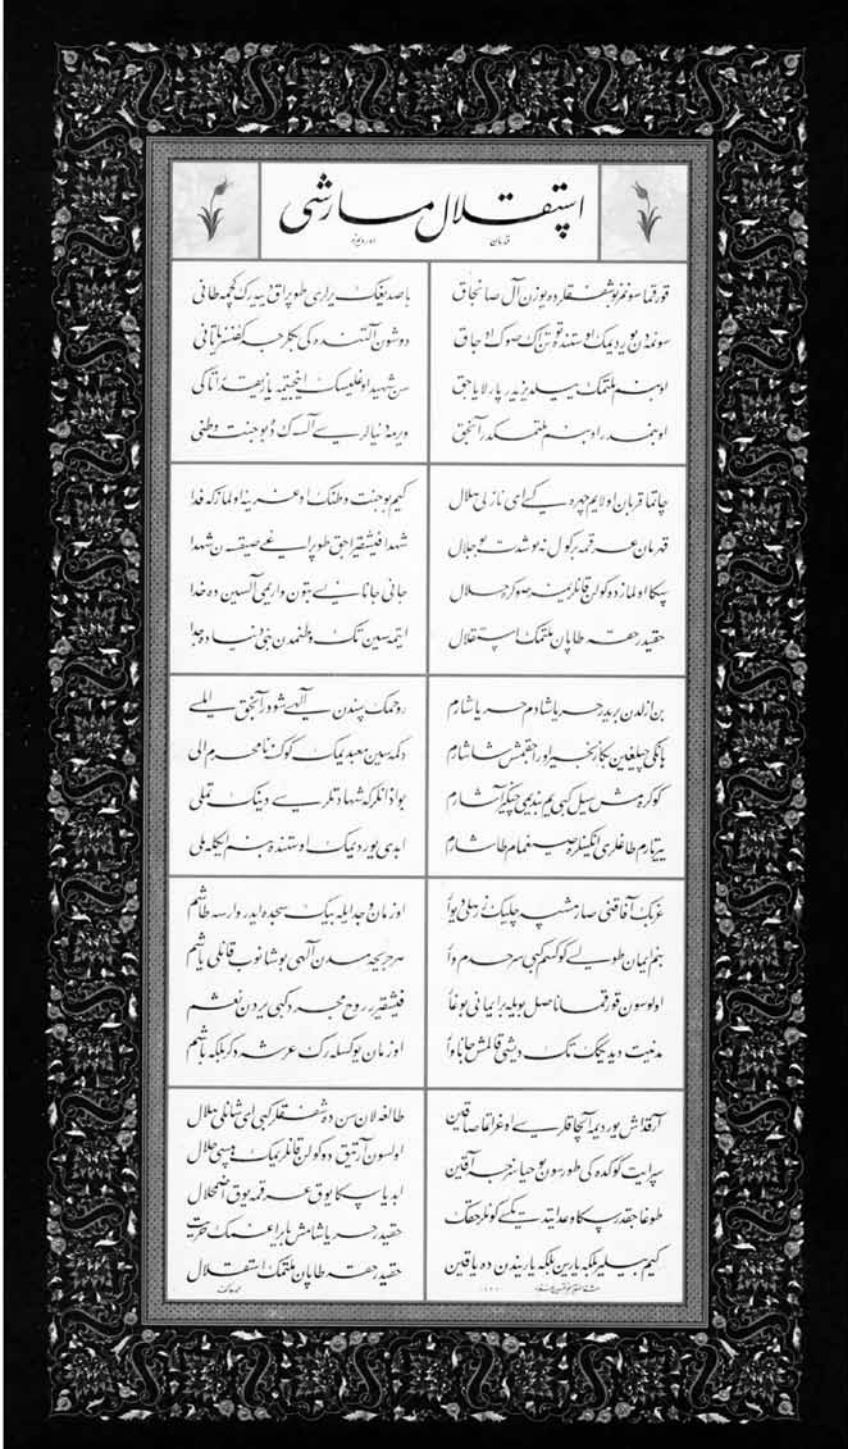 استقلال مارشی
قهرمان اوردومزه
قورقما سونمز بو شفقلرده یوزن آل صانجاق
سونمدن یوردیمك اوستنده توتن اڭ صوك اوجاق
او بنم ملتمك ییلدیزیدر پارلایاجق
او بنمدر او بنم ملتمكدر آنجق
چاتما قربان اولایم چهره‌كی ای نازلی هلال
قهرمان عرقمه بر كول نه بو شدت بو جلال
سكا اولماز دوكولن قانلریمز صوكره حلال
حقیدر حقه طاپان ملتمك استقلال
بن ازلدن بریدر حر یاشادم حر یاشارم
هانكی چیلغین بكا زنجیر اوراجقمش شاشارم
كوكره‌مش سیل كبی‌یم بندیمی چیكنر آشارم
ییرتارم طاغلری انكینلره صیغمام طاشارم
غربك آفاقنی صارمشسه چلیك زرهلی دیوار
بنم ایمان طولی كوكسم كبی سرحدم وار
اولوسون قورقما ناصل بویله بر ایمانی بوغار
مدنیت دیدیكك تك دیشی قالمش جاناوار
آرقداش یوردیمه آلچاقلری اوغراتما صاقین
سپر ایت كوكده‌كی طورسون بو حیاسزجه آقین
طوغاجقدر سكا وعد ایتدیكی كونلر حقك
كیم بیلیر بلكه یارین بلكه یاریندن ده یاقین
باصدیغك یرلری طوپراق دییه‌رك كچمه طانی
دوشون آلتنده‌كی بیكلرجه كفنسز یاتانی
سن شهید اوغلیسك اینجیتمه یازیقدر آتاكی
ویرمه دنیالری آلسه‌ك ده بو جنت وطنی
كیم بو جنت وطنك اوغرینه اولماز كه فدا
شهدا فیشقیراجق طوپراغی صیقسه‌ن شهدا
جانی جانانی بتون واریمی آلسین ده خدا
ایتمه‌سین تك وطنمدن بنی دنیاده جدا
روحمك سندن آلهی شودر آنجق املی
دكمه‌سین معبدیمك كوكسنه نامحرم الی
بو اذانلر كه شهادتلری دینك تملی
ابدی یوردیمك اوستنده بنم ایكله‌ملی
او زمان وجد ایله بیك سجده ایدر وارسه طاشم
هر جریحه‌مدن آلهی بوشانوب قانلی یاشم
فیشقیرر روح مجرد كبی یردن نعشم
او زمان یوكسله‌رك عرشه دكر بلكه باشم
طالغه‌لان سن ده شفقلر كبی ای شانلی هلال
اولسون آرتیق دوكولن قانلریمك هپسی حلال
ابدیا سكا یوق عرقمه یوق اضمحلال
حقیدر حر یاشامش بایراغمك حریت
حقیدر حقه طاپان ملتمك استقلال